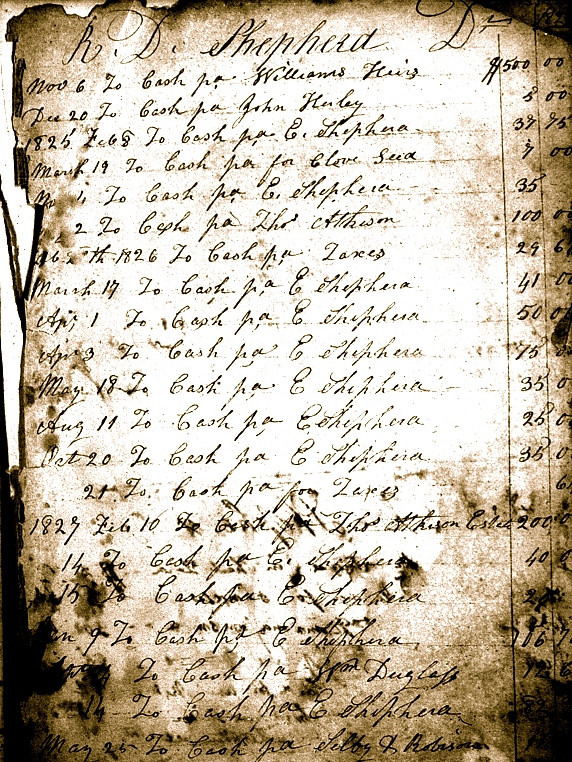 R. D. Shepherd Dr
Nov 6 To Cash pa Williams Heirs $500 00
Dec 20 To Cash pa John Hurley 5 00
1825 Feb 8 To Cash pa E. Shepherd 37 75
March 19 To Cash pa for Clove Seed 7 00
1 To Cash pa E. Shepherd 35
2 To Cash pa Thos Athison 100 00
1826 To Cash pa Taxes 29
March 17 To Cash pa E Shepherd 41 00
Apr 1 To Cash pa E Shepherd 50
Apr 3 To Cash pa E Shepherd 75
May 18 To Cash pa E Shepherd 35
Aug 11 To Cash pa E Shepherd 25
Oct 20 To Cash pa E Shepherd 35
21 To Cash pa for Taxes
1827 Feb 10 To Cash pa Thos Athison Estate 200
14 To Cash pa E. Shepherd 40
15 To Cash pa E Shepherd
9 To Cash pa E Shepherd
To Cash pa Wm Duglass
14 To Cash pa E Shepherd
May 25 To Cash pa Selby & Robison